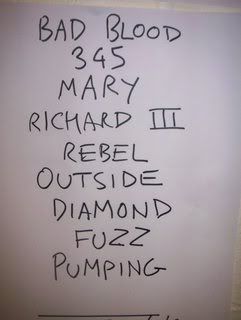 BAD BLOOD
345
MARY
RICHARD III
REBEL
OUTSIDE
DIAMOND
FUZZ
PUMPING